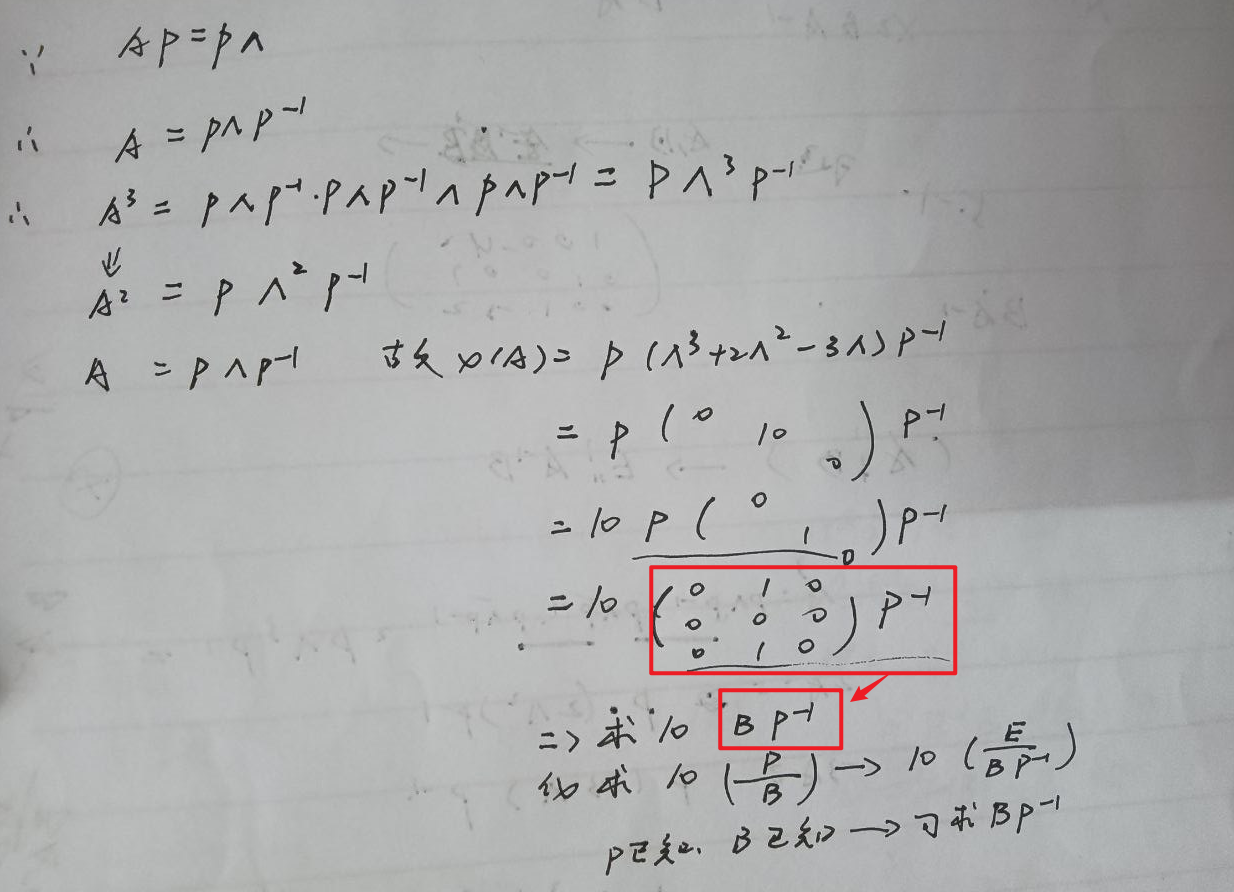 ∵ AP = PΛ
∴ A = PΛP⁻¹
∴ A³ = PΛP⁻¹·PΛP⁻¹Λ PΛP⁻¹ = PΛ³P⁻¹
⇓
A² = PΛ²P⁻¹
A = PΛP⁻¹ 故 φ(A) = P(Λ³+2Λ²-3Λ)P⁻¹
= P ( 0 10 0 ) P⁻¹
= 10 P ( 0 1 0 ) P⁻¹
= 10 ( 0 1 0
0 0 0
0 1 0 ) P⁻¹
=> 求 10 B P⁻¹
求 10 (P/B) → 10 (E/BP⁻¹)
P已知、B已知 → 可求BP⁻¹